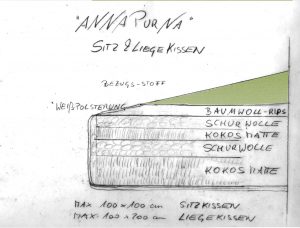 "ANNAPURNA"
SITZ & LIEGE KISSEN
BEZUGS-STOFF
"WEIßPOLSTERUNG
BAUMWOLL-RIPS
SCHURWOLLE
KOKOSMATTE
SCHURWOLLE
KOKOSMATTE
MAX 100x100 cm SITZKISSEN
MAX: 100x200 cm LIEGEKISSEN